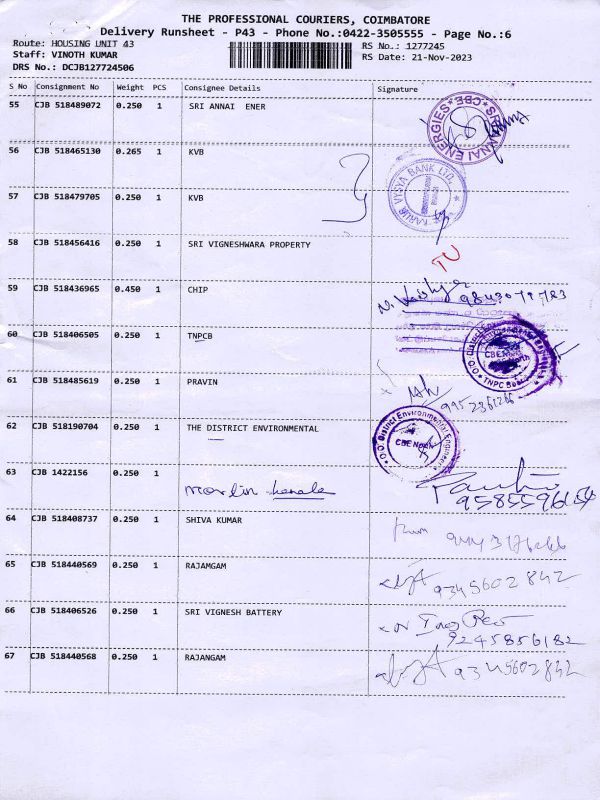 THE PROFESSIONAL COURIERS, COIMBATORE
Delivery Runsheet - P43 - Phone No.:0422-3505555 - Page No.:6
Route: HOUSING UNIT 43
RS No.: 1277245
Staff: VINOTH KUMAR
RS Date: 21-Nov-2023
DRS No.: DCJB127724506
S No Consignment No Weight PCS Consignee Details Signature
55 CJB 518489072 0.250 1 SRI ANNAI ENER
SRI ANNAI ENERGIES CBE
56 CJB 518465130 0.265 1 KVB
KARUR VYSYA BANK LTD.
57 CJB 518479705 0.250 1 KVB
58 CJB 518456416 0.250 1 SRI VIGNESHWARA PROPERTY
59 CJB 518436965 0.450 1 CHIP
60 CJB 518406505 0.250 1 TNPCB
O/O. District Environmental Engineer TNPC Board
61 CJB 518485619 0.250 1 PRAVIN
62 CJB 518190704 0.250 1 THE DISTRICT ENVIRONMENTAL
O/O. District Environmental Engineer
CBE North
63 CJB 1422156 0.250 1
64 CJB 518408737 0.250 1 SHIVA KUMAR
65 CJB 518440569 0.250 1 RAJAMGAM 9345602842
66 CJB 518406526 0.250 1 SRI VIGNESH BATTERY
9245856182
67 CJB 518440568 0.250 1 RAJANGAM 9345602842